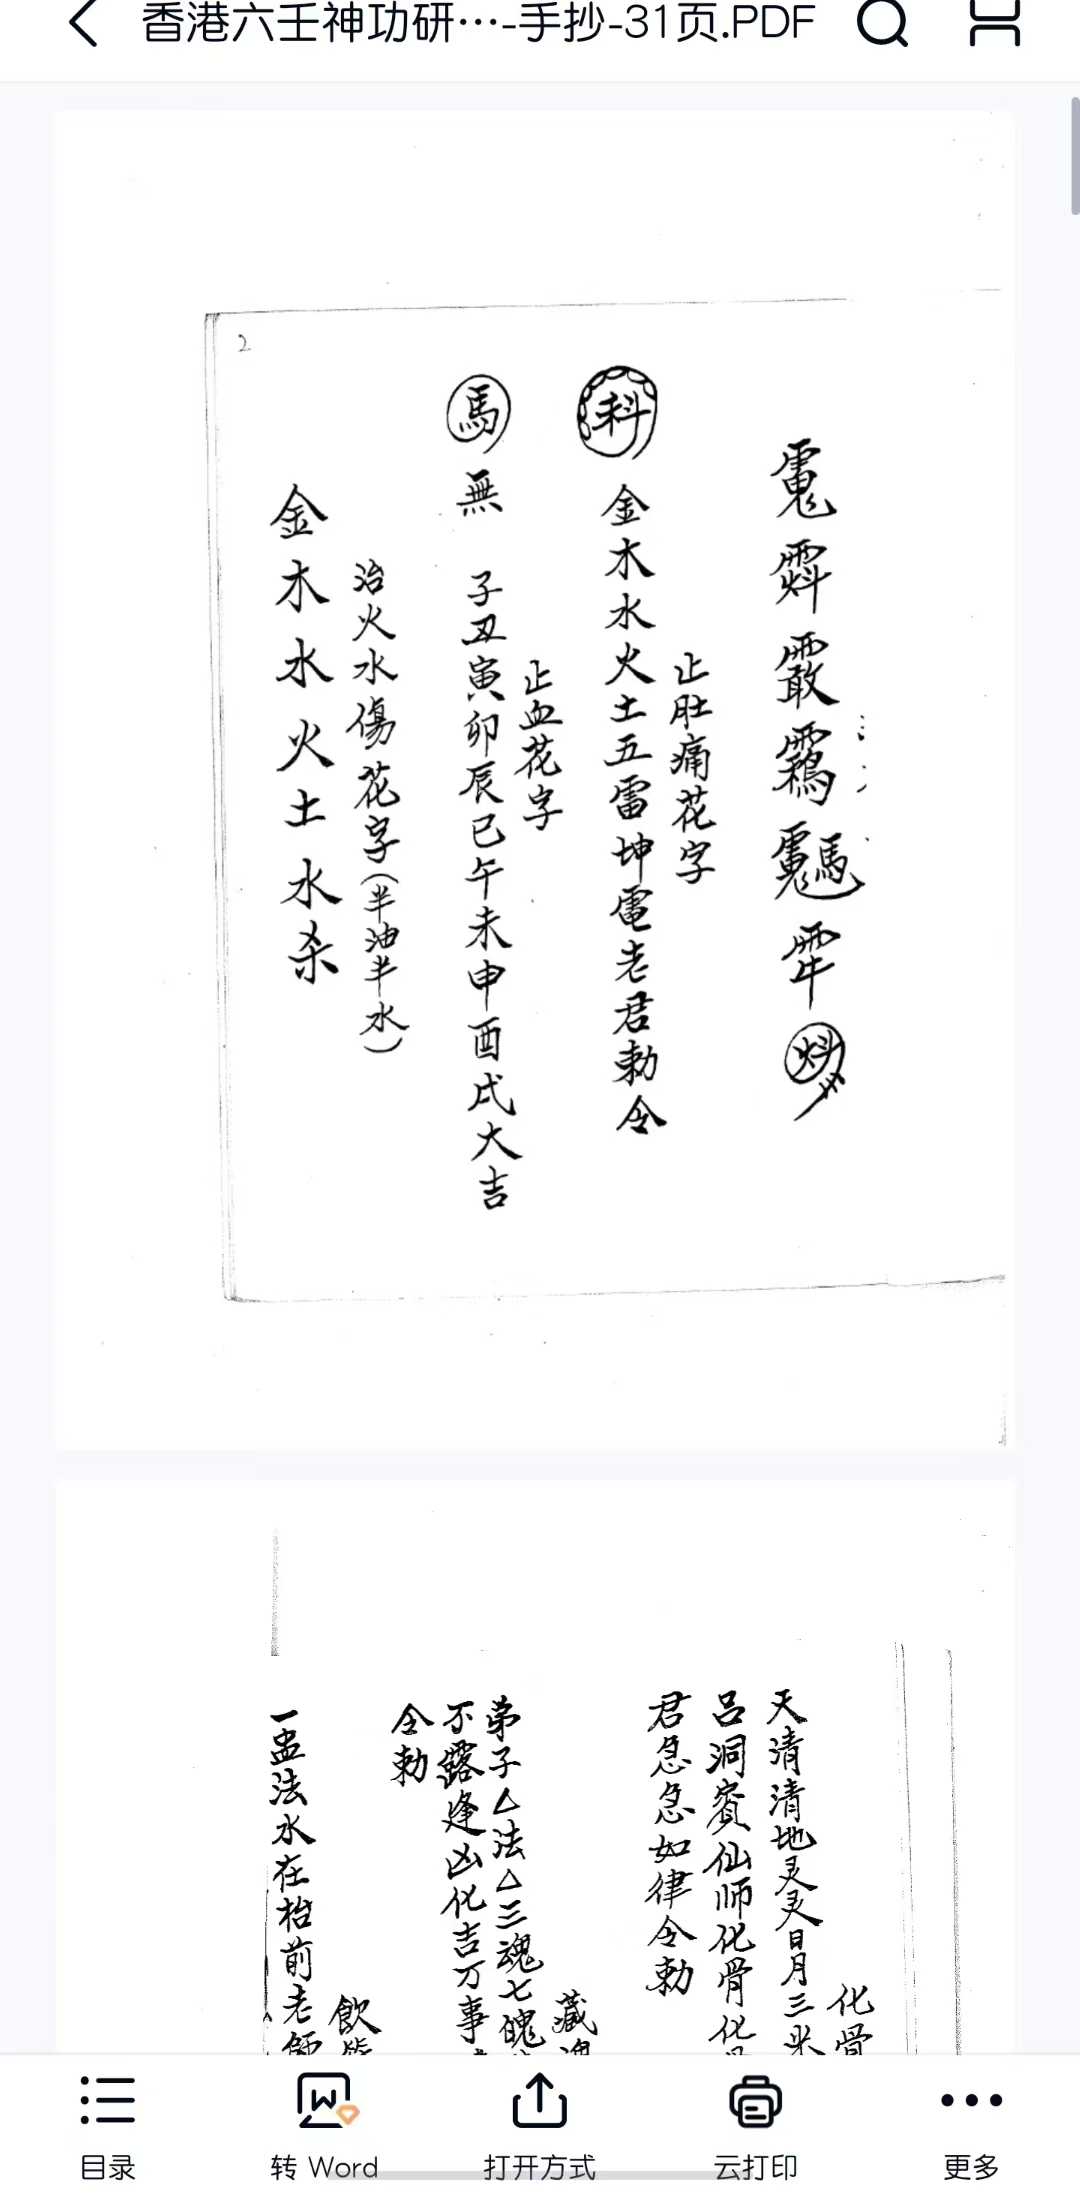 香港六壬神功研…-手抄-31页.PDF
2
止肚痛花字
科
金木水火土五雷坤電老君勅令
止血花字
馬
無 子丑寅卯辰巳午未申酉戌大吉
治火水傷花字(半油半水)
金木水火土水杀
化骨
天清清地灵灵日月三米
吕洞賓仙师化骨化
君急急如律令勅
藏
弟子△法△三魂七魄
不露逢凶化吉万事
令勅
飲
一盅法水在枱前老師
目录
转 Word
打开方式
云打印
更多